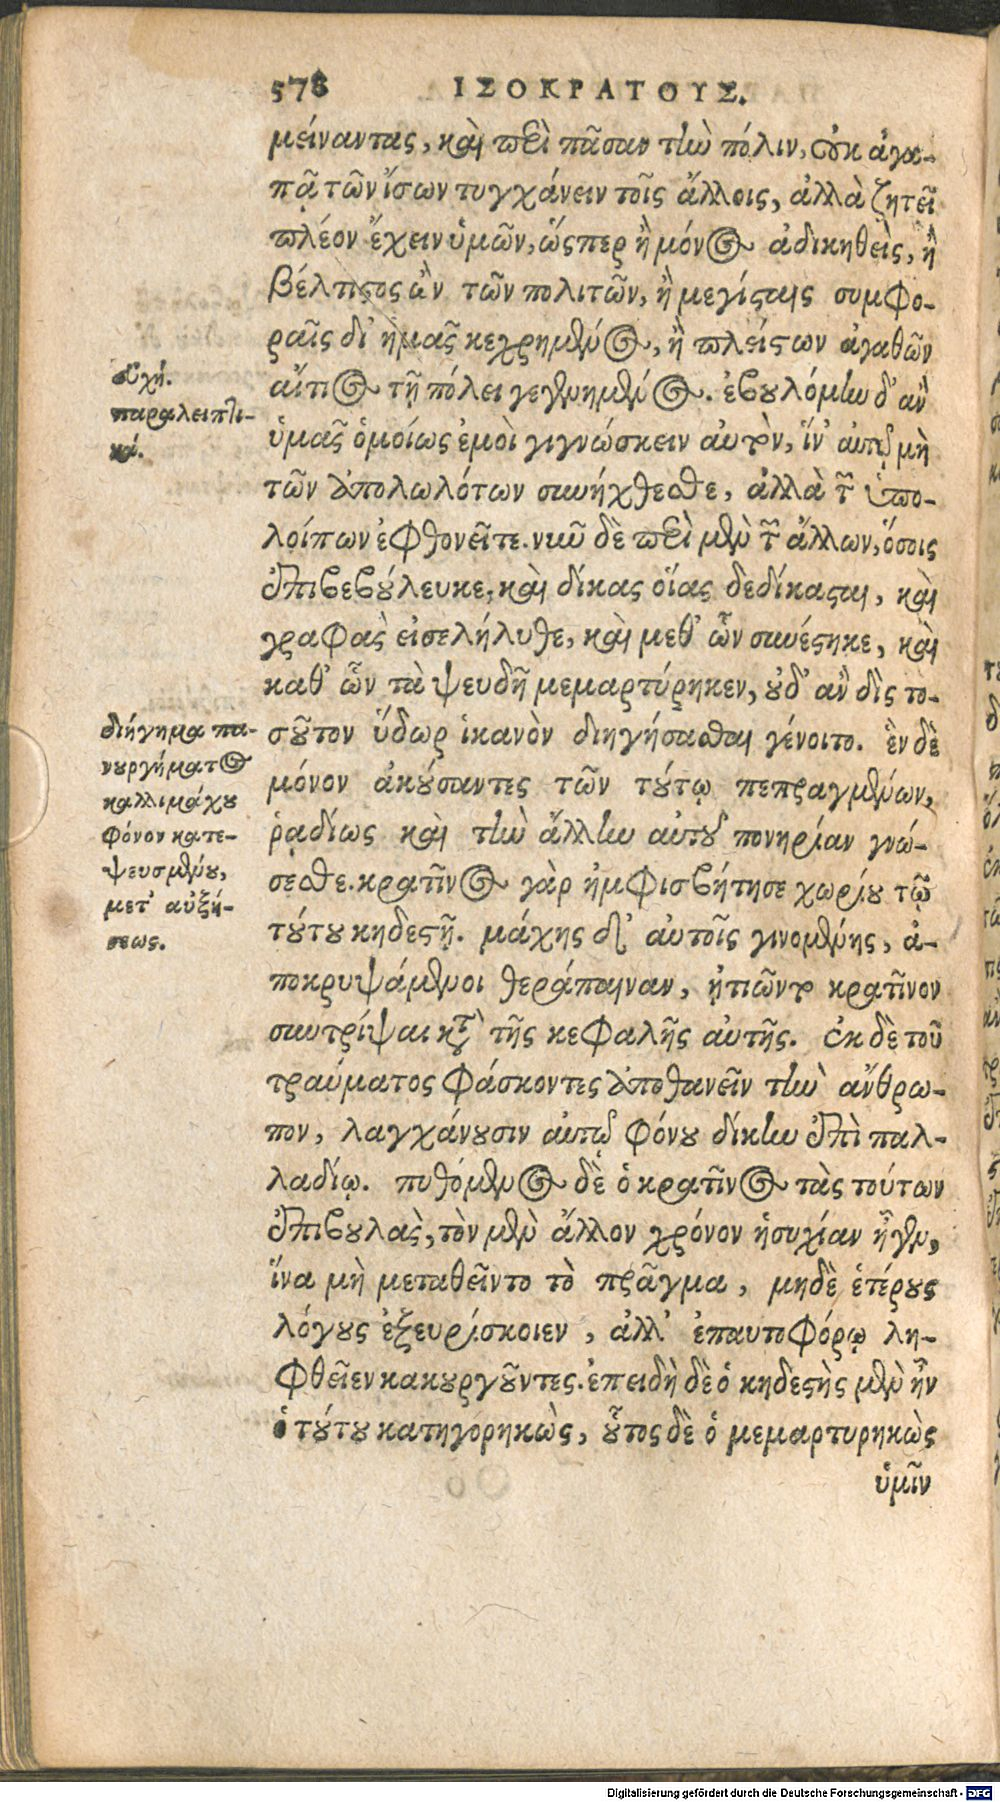 578 ΙΣΟΚΡΑΤΟΥΣ.
μείναντας, καὶ περὶ πᾶσαν τὴν πόλιν, οὐκ ἀγα-
πᾷ τῶν ἴσων τυγχάνειν τοῖς ἄλλοις, ἀλλὰ ζητεῖ
πλέον ἔχειν ὑμῶν, ὥσπερ ἢ μόνος ἀδικηθεὶς, ἢ
βέλτιστος ὢν τῶν πολιτῶν, ἢ μεγίσταις συμφο-
ραῖς δι' ἡμᾶς κεχρημένος, ἢ πλείστων ἀγαθῶν
αἴτιος τῇ πόλει γεγενημένος. ἐβουλόμην δ' ἂν
ὑμᾶς ὁμοίως ἐμοὶ γιγνώσκειν αυτὸν, ἵν' αὐτῷ μὴ
τῶν ἀπολωλότων συνήχθεσθε, ἀλλὰ τῶν ὑπο-
λοίπων ἐφθονεῖτε. νῦν δὲ περὶ μὲν τῶν ἄλλων, ὅσοις
ἐπιβεβούλευκε, καὶ δίκας οἵας δεδίκασται, καὶ
γραφὰς εἰσελήλυθε, καὶ μεθ' ὧν συνέστηκε, καὶ
καθ' ὧν τὰ ψευδῆ μεμαρτύρηκεν, οὐδ' ἂν δὶς το-
σοῦτον ὕδωρ ἱκανὸν διηγήσασθαι γένοιτο. ἓν δὲ
μόνον ἀκούσαντες τῶν τούτῳ πεπραγμένων,
ῥᾳδίως καὶ τὴν ἄλλην αὐτοῦ πονηρίαν γνώ-
σεσθε. κρατῖνος γὰρ ἠμφισβήτησε χωρίου τῷ
τούτου κηδεστῇ. μάχης δ' αὐτοῖς γινομένης, ἀ-
ποκρυψάμενοι θεράπαιναν, ᾐτιῶντο κρατῖνον
συντρίψαι κατὰ τῆς κεφαλῆς αὐτῆς. ἐκ δὲ τοῦ
τραύματος φάσκοντες ἀποθανεῖν τὴν ἄνθρω-
πον, λαγχάνουσιν αὐτῷ φόνου δίκην ἐπὶ παλ-
λαδίῳ. πυθόμενος δὲ ὁ κρατῖνος τὰς τούτων
ἐπιβουλὰς, τὸν μὲν ἄλλον χρόνον ἡσυχίαν ἦγεν,
ἵνα μὴ μεταθεῖντο τὸ πρᾶγμα, μηδὲ ἑτέρους
λόγους ἐξευρίσκοιεν, ἀλλ' ἐπαυτοφόρῳ λη-
φθεῖεν κακουργοῦντες. ἐπειδὴ δὲ ὁ κηδεστὴς μὲν ἦν
ὁ τούτου κατηγορηκὼς, οὗτος δὲ ὁ μεμαρτυρηκὼς
ὑμῖν
εὐχή.
παραλειπτι-
κά.
διήγημα πα-
νουργήματος
καλλιμάχου
φόνον κατε-
ψευσμένου,
μετ' αὐξή-
σεως.
Digitalisierung gefördert durch die Deutsche Forschungsgemeinschaft - DFG